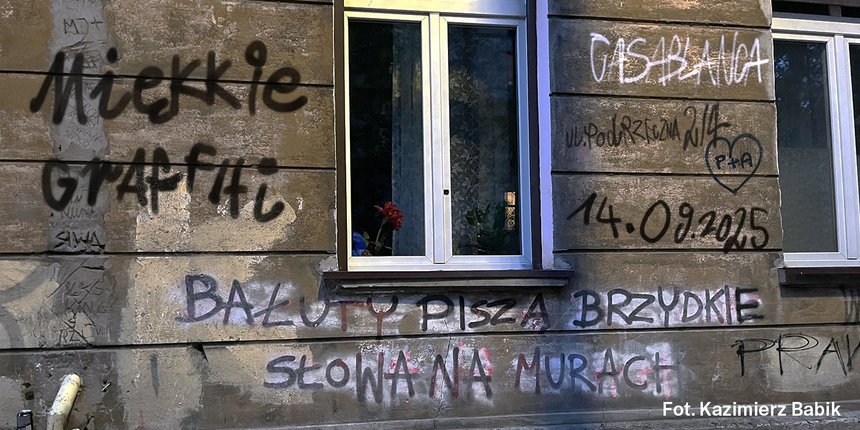 MJ+
Miękkie
GrAFFiti
SIWA
CASABLANCA
ul. PodRZECZNA 2/4
P+A
14.09.2025
BAŁUTY PISZĄ BRZYDKIE
SŁOWA NA MURACH
Fot. Kazimierz Babik